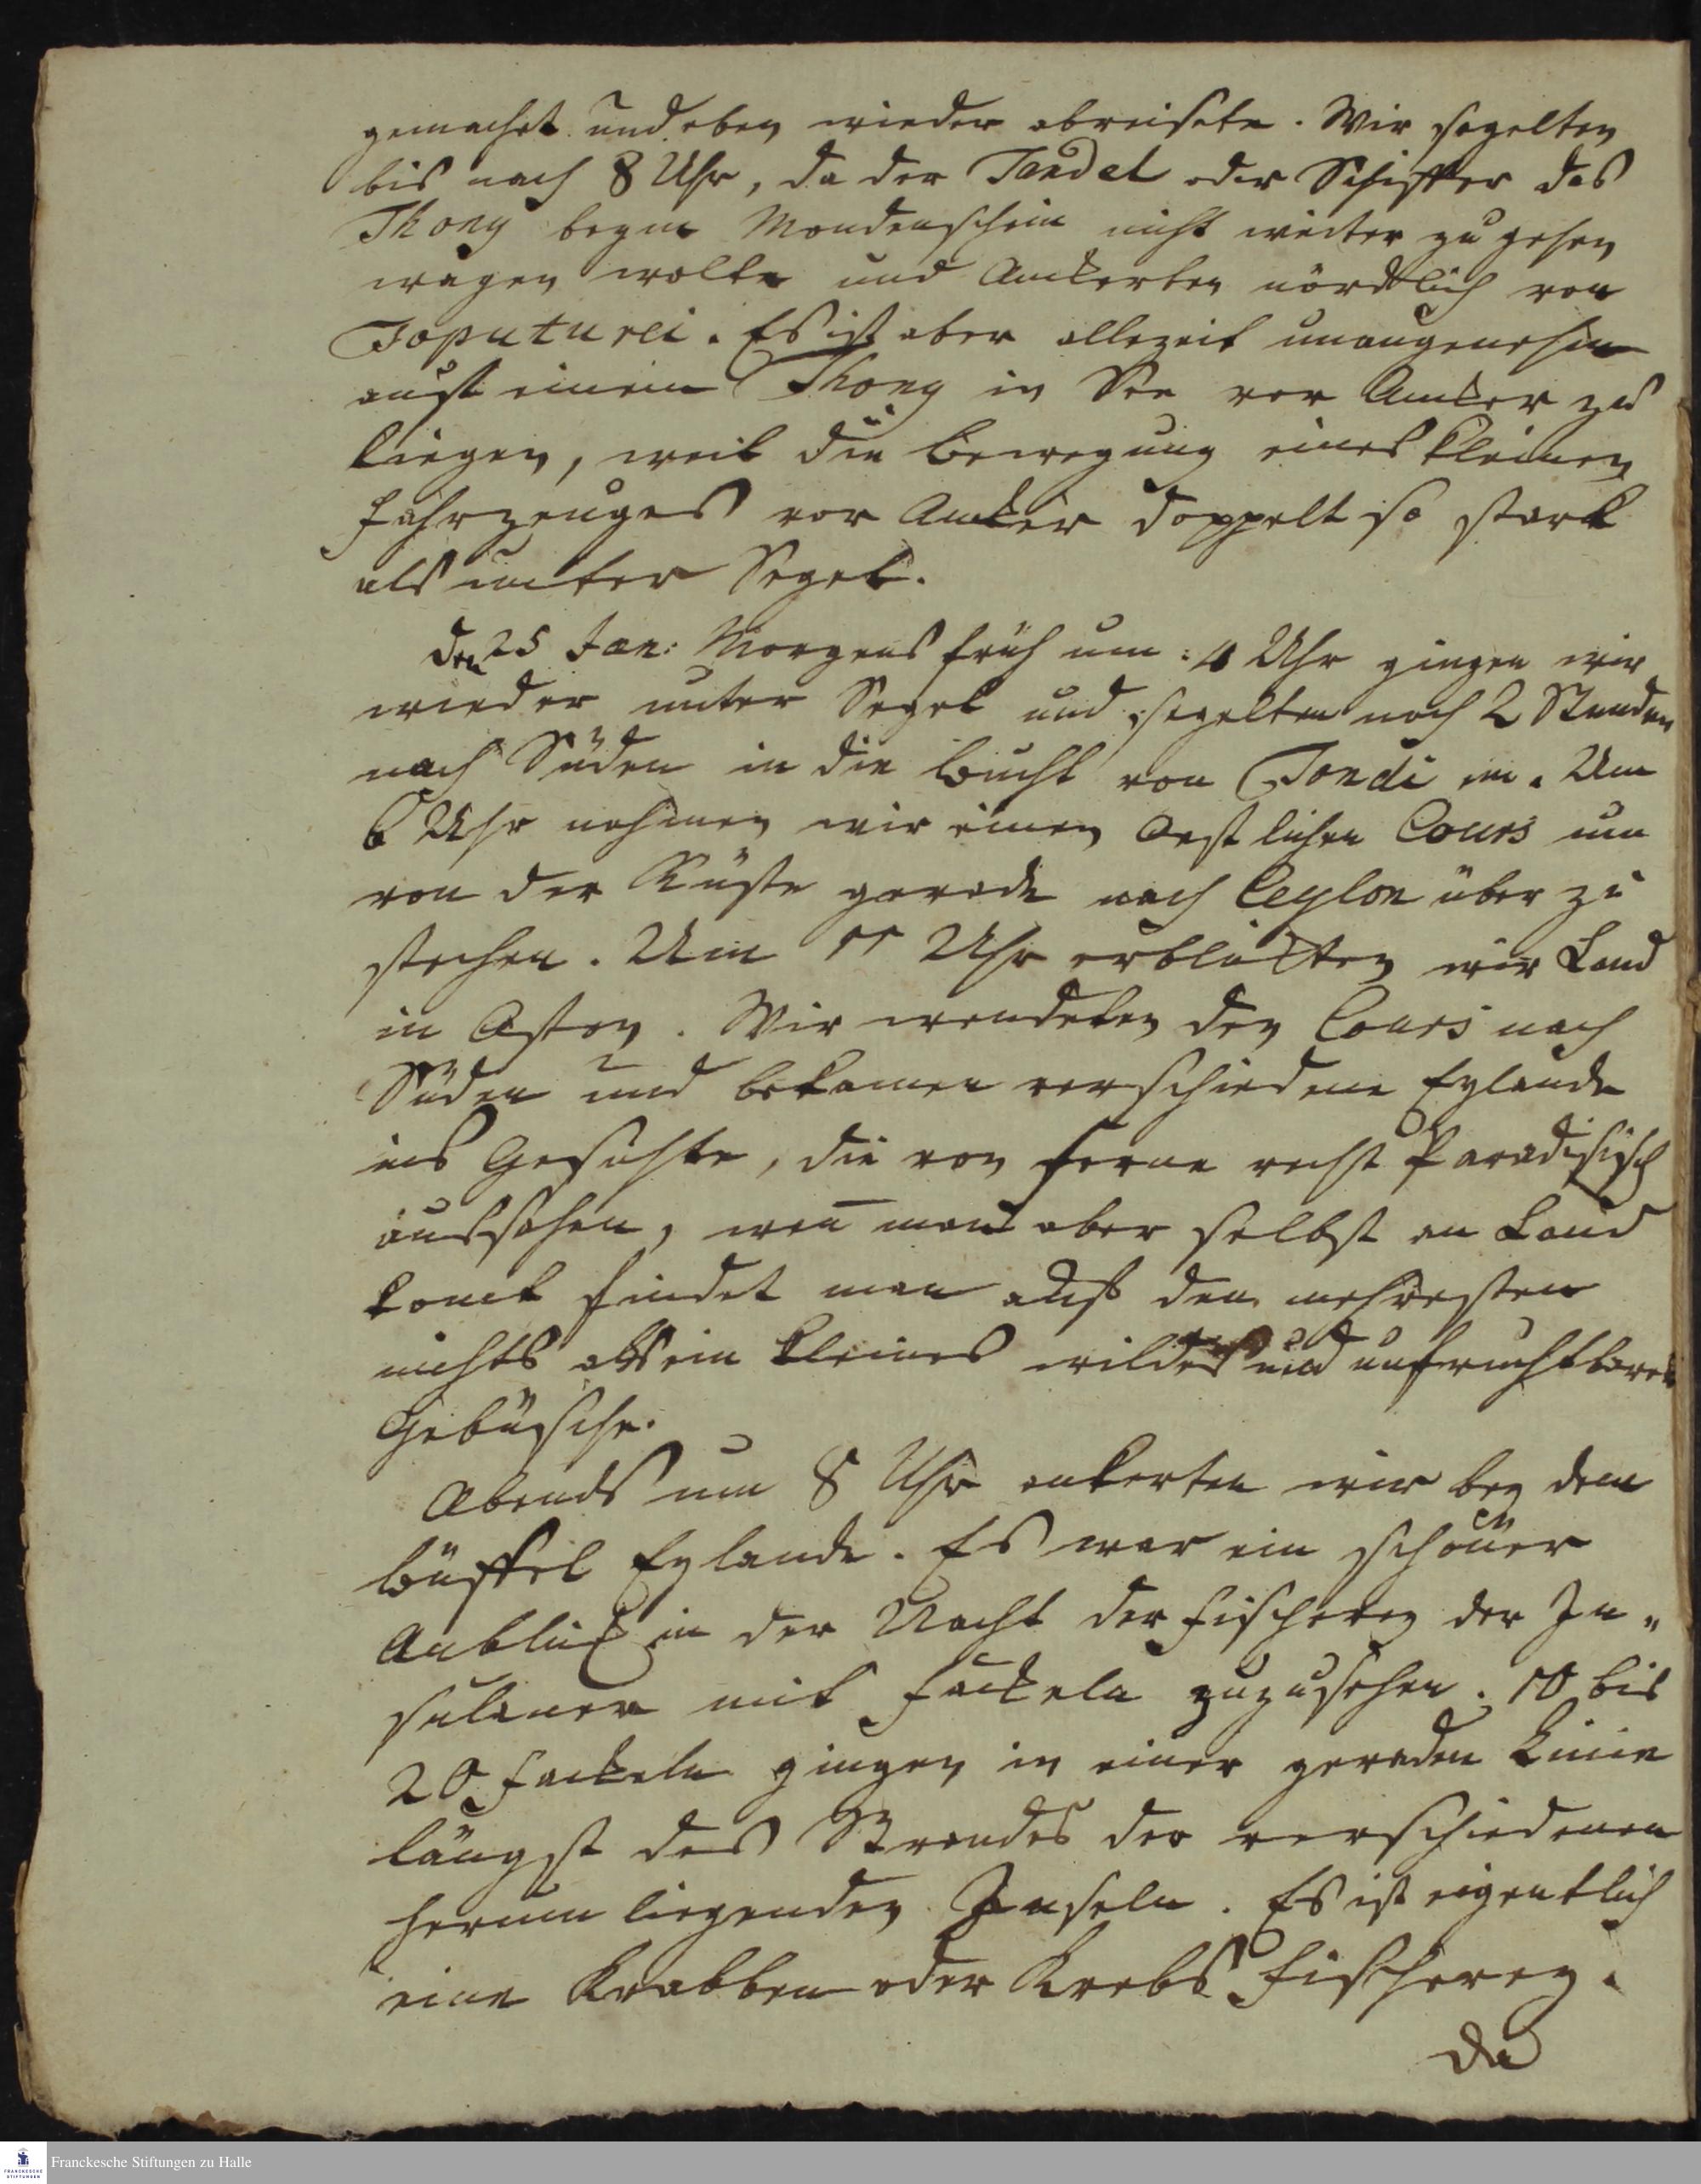 gemacht und eben wieder abreisete. Wir segelten
bis nach 8 Uhr, da der Tandel oder Schiffer das
Thony beym Mondenschein nicht weiter zu gehen
wagen wolte und Ankerten nördlich von
Toputurei. Es ist aber allezeit unangenehm
auf einem Thony in See vor Anker zu
liegen, weil die Bewegung eines kleinen
Fahrzeuges vor Anker doppelt so stark
als unter Segel.
den 25 Jan: Morgens früh um 4 Uhr gingen wir
wieder unter Segel und segelten noch 2 Stunden
nach Süden in die Bucht von Tondi ein. Um
6 Uhr nahmen wir einen Oestlichen Cours um
von der Küste gerade nach Ceylon über zu
stechen. Um 11 Uhr erblikten wir Land
in Osten. Wir wendeten den Cours nach
Süden und bekamen verschiedene Eylande
ins Gesichte, die von ferne recht Paradisisch
aussahen, wen̄ man aber selbst an Land
komt findet man auf den mehresten
nichts als ein kleines wildes und unfruchtbares
Gebüsche.
Abends um 8 Uhr ankerten wir bey dem
Büffel Eylande. Es war ein schöner
Anblick in der Nacht der Fischerey der In„
sulaner mit Fackeln zuzusehen. 10 bis
20 Fackeln gingen in einer geraden Linie
längst des Strandes der verschiedenen
herum liegenden Inseln. Es ist eigentlich
eine Krabben oder Krebs Fischerey.
Da
Franckesche Stiftungen zu Halle